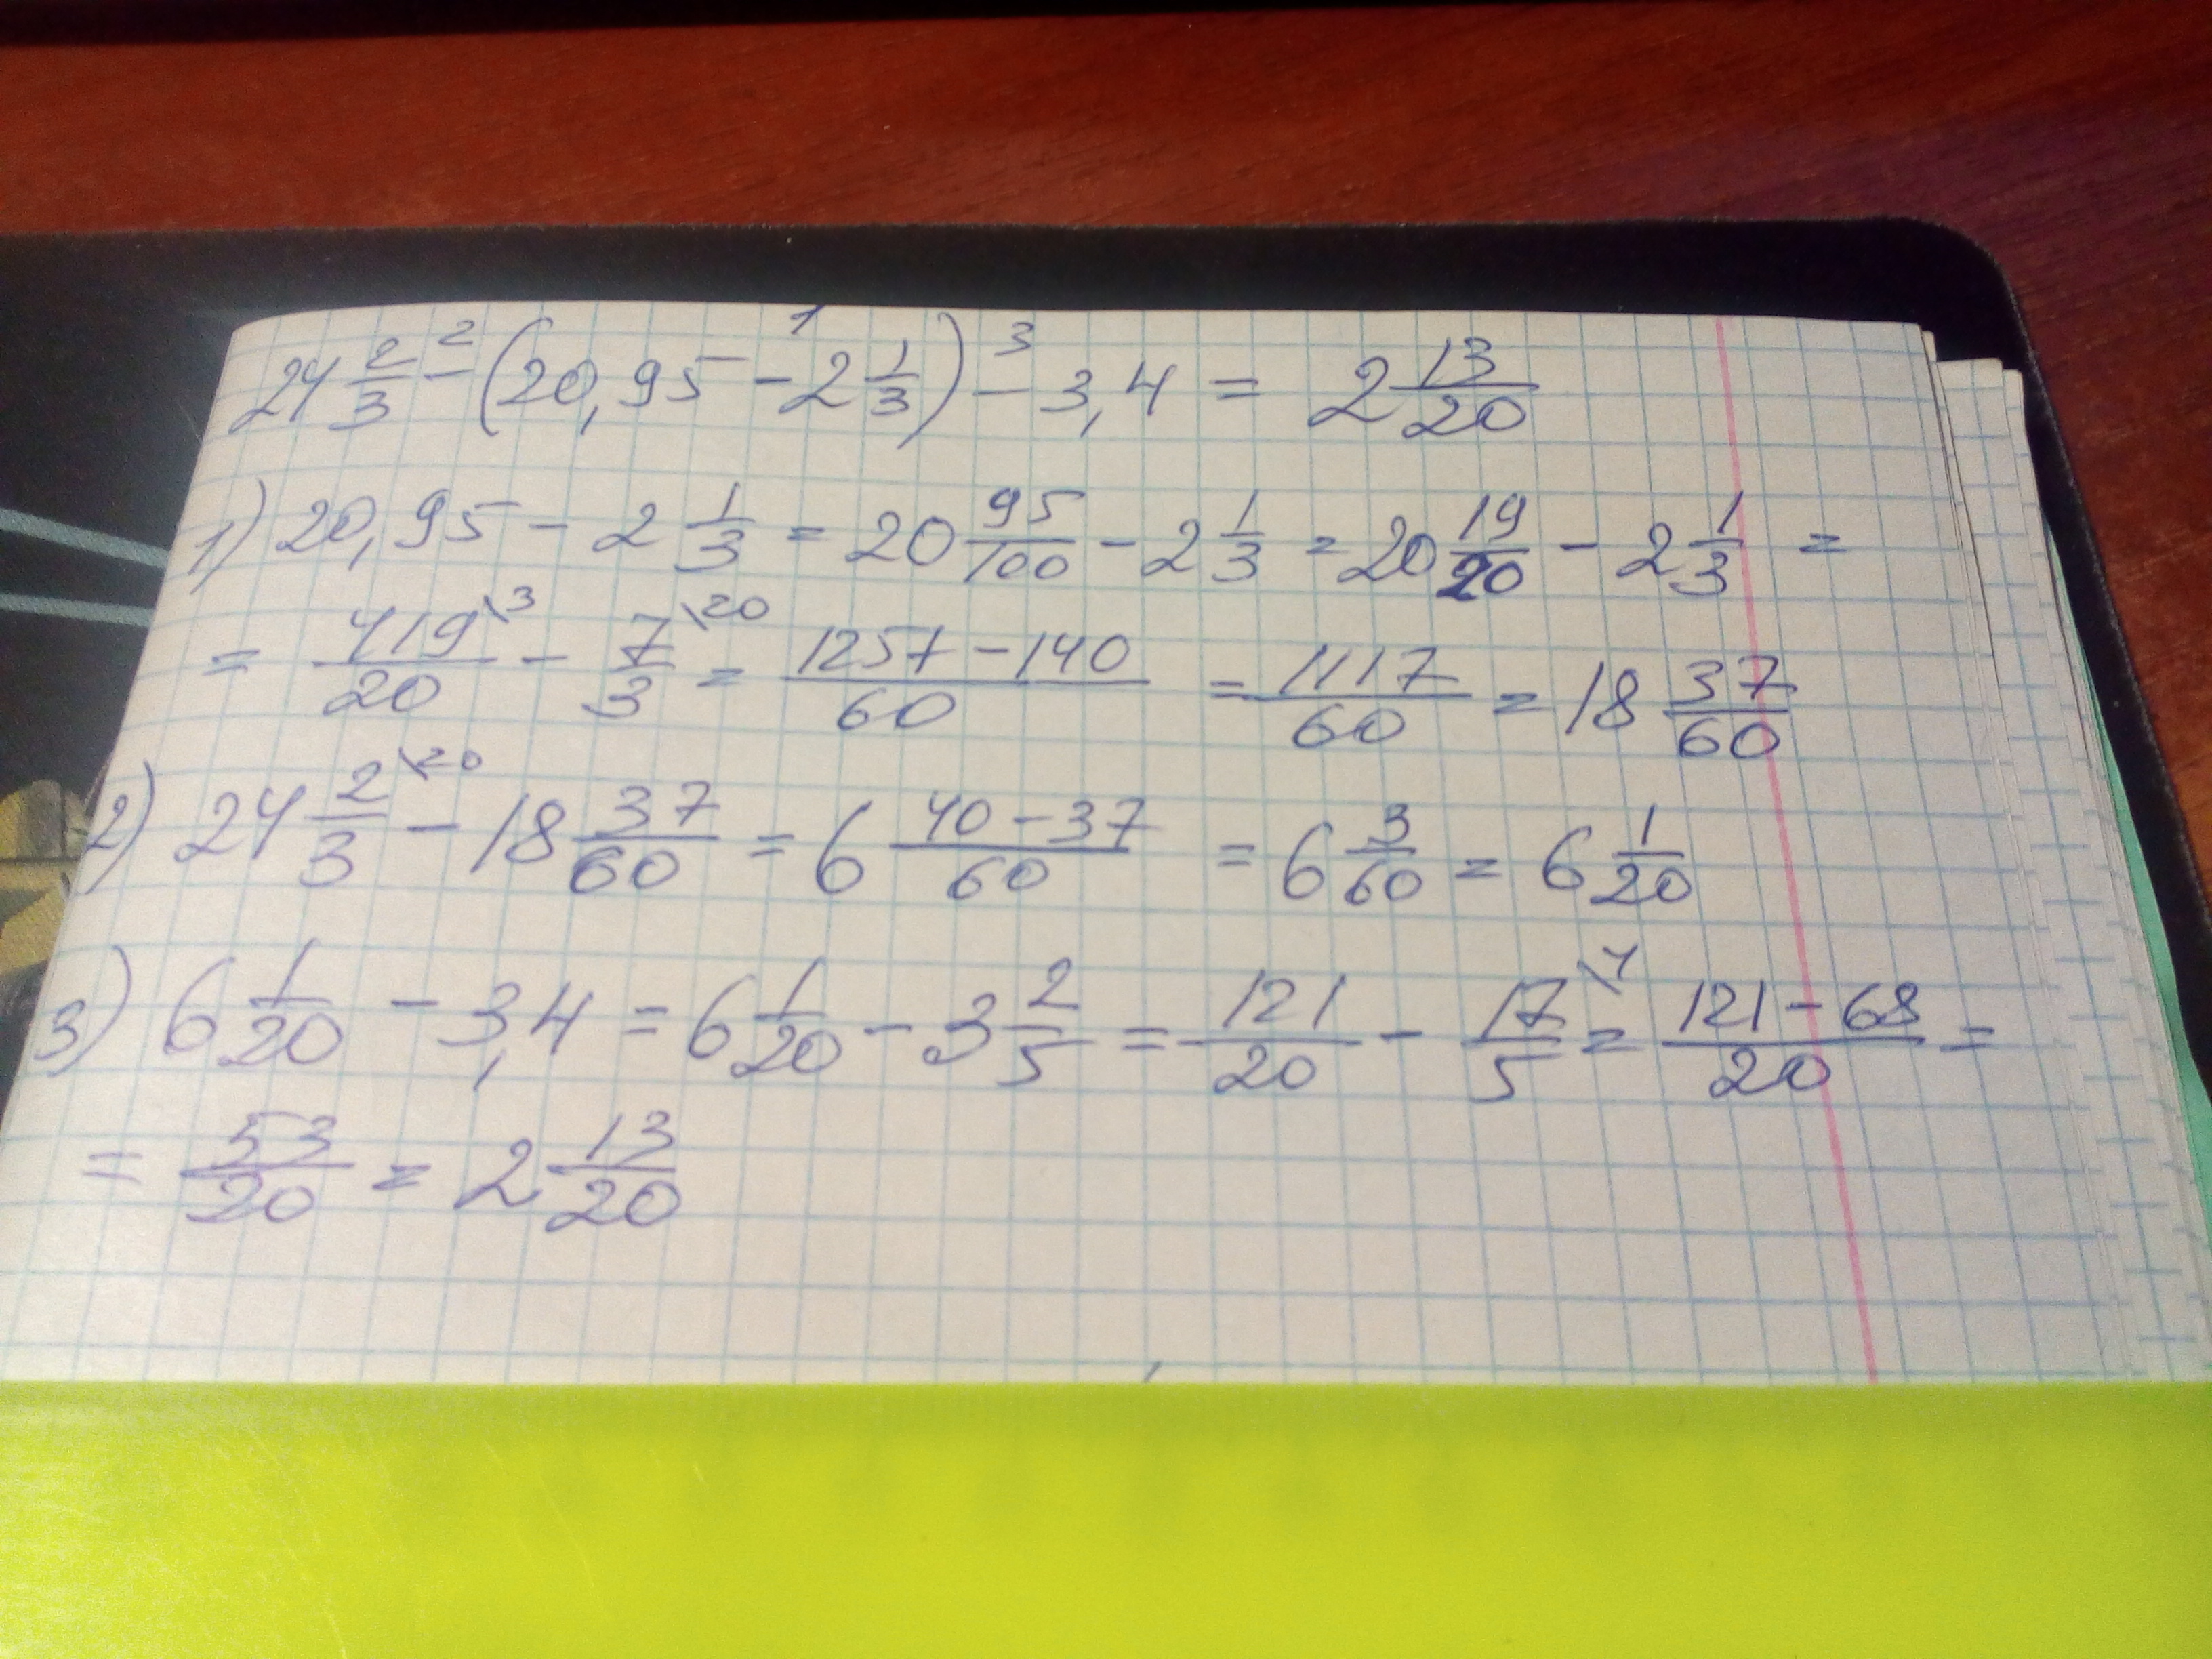 24 2/3 -² (20,95 -¹ 2 1/3) -³ 3,4 = 2 13/20
1) 20,95 - 2 1/3 = 20 95/100 - 2 1/3 = 20 19/20 - 2 1/3 =
= 419/20 \3 - 7/3 \20 = (1257 - 140)/60 = 1117/60 = 18 37/60
2) 24 2/3 \20 - 18 37/60 = 6 (40 - 37)/60 = 6 3/60 = 6 1/20
3) 6 1/20 - 3,4 = 6 1/20 - 3 2/5 = 121/20 - 17/5 \4 = (121 - 68)/20 =
= 53/20 = 2 13/20